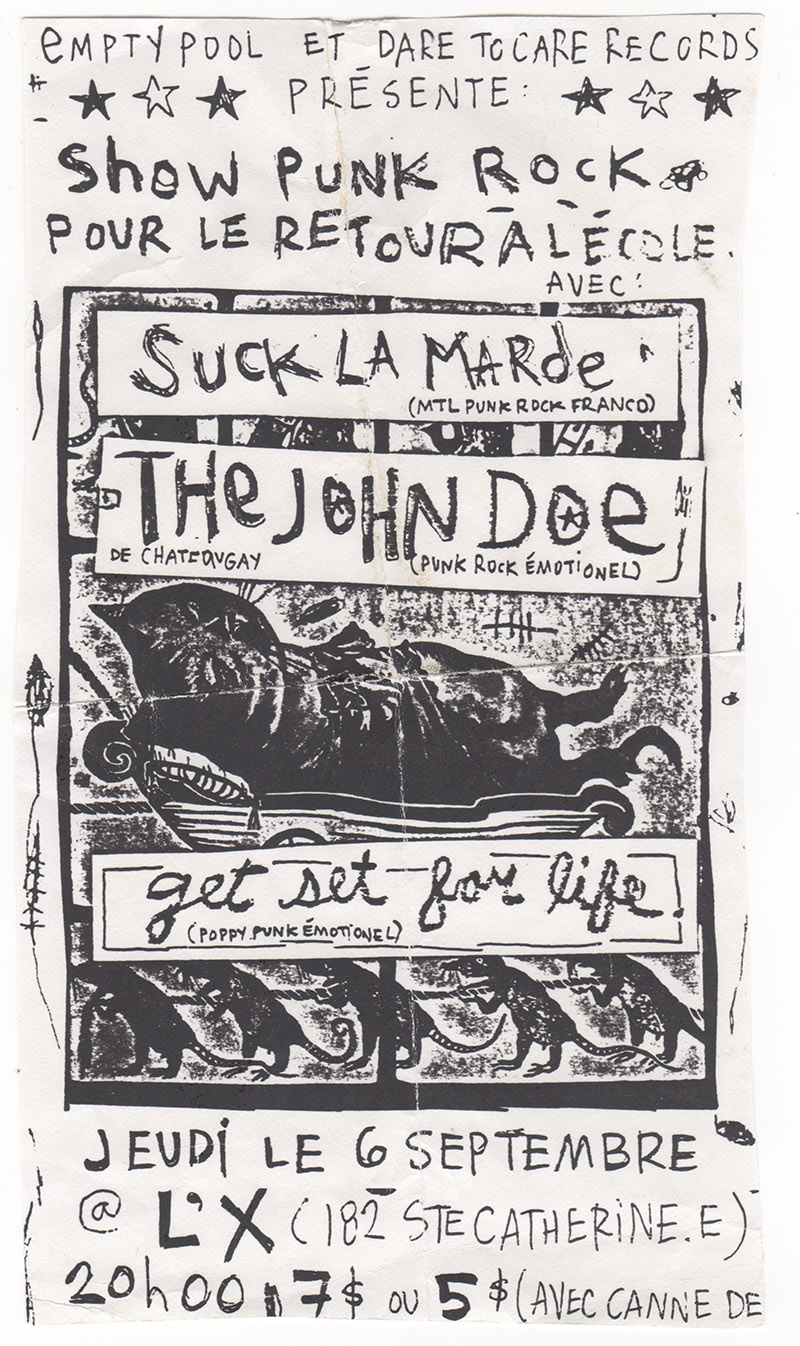 EMPTY POOL ET DARE TO CARE RECORDS
PRÉSENTE:
SHOW PUNK ROCK
POUR LE RETOUR À L'ÉCOLE.
AVEC:
SUCK LA MARDE
(MTL PUNK ROCK FRANCO)
THE JOHN DOE
DE CHATEOUGAY (PUNK ROCK ÉMOTIONEL)
get set for life.
(POPPY PUNK ÉMOTIONEL)
JEUDI LE 6 SEPTEMBRE
@ L'X (182 STE CATHERINE.E)
20h00, 7$ OU 5$ (AVEC CANNE DE